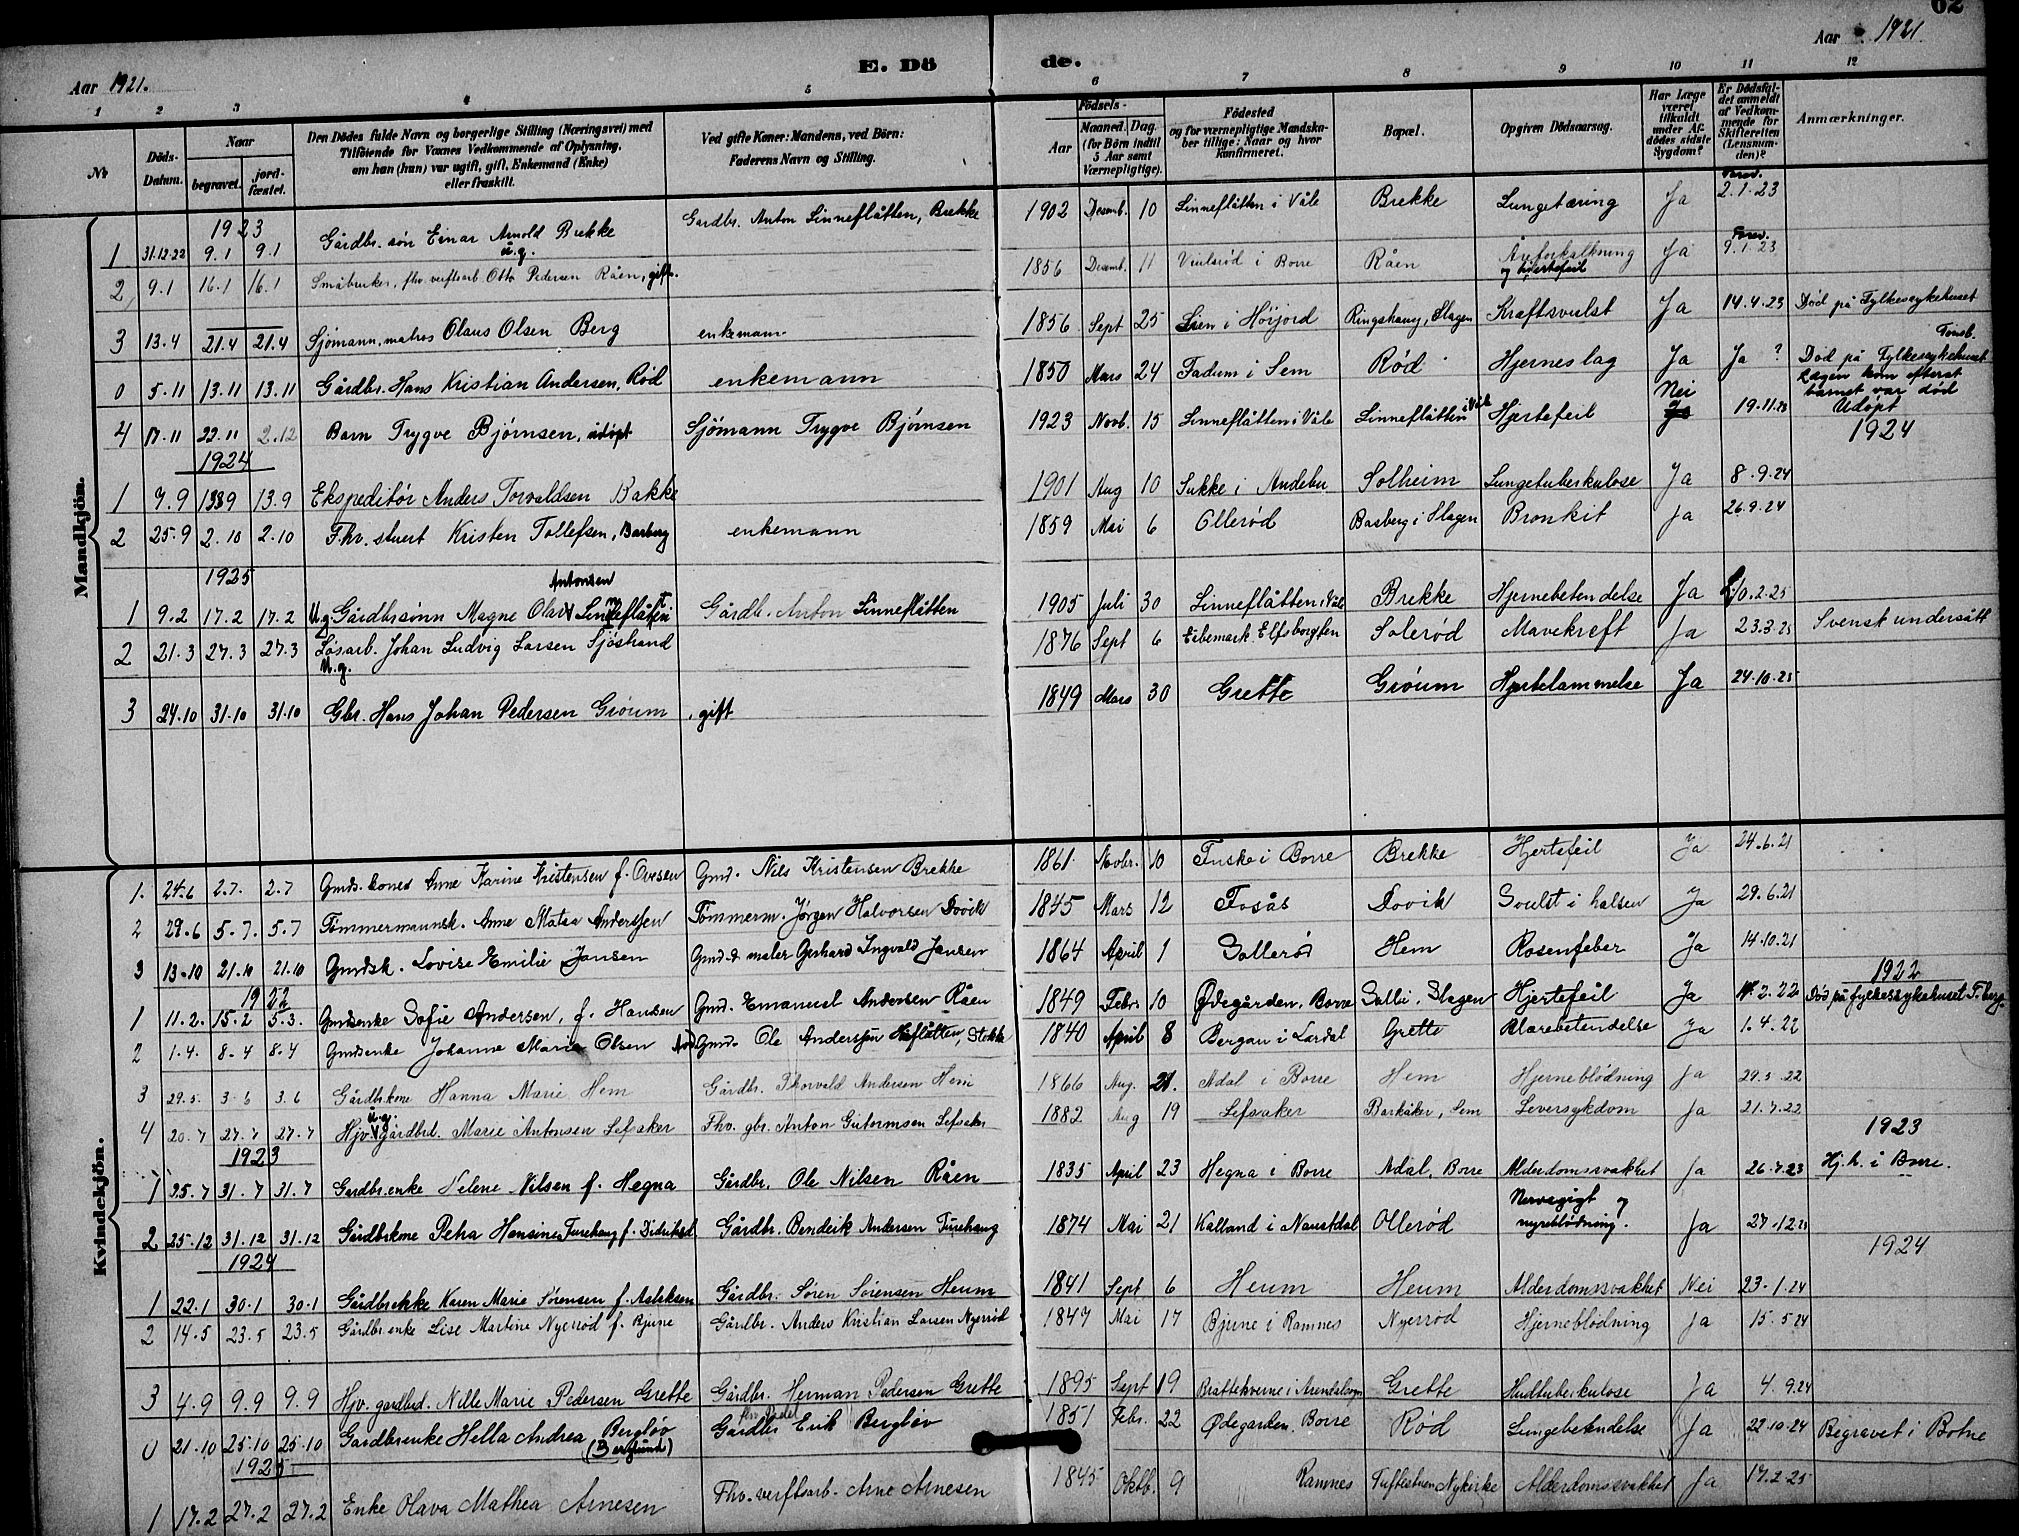 62
Aar 1921. E. Dö de. Aar 1921.
1 2 3 4 5 6 7 8 9 10 11 12
№ Döds-Datum. Naar begravet. jord-fæstet. Den Dödes fulde Navn og borgerlige Stilling (Næringsvei) med Tilföiende for Voxnes Vedkommende af Oplysning, om han (hun) var ugift, gift, Enkemand (Enke) eller fraskilt. Ved gifte Koner: Mandens, ved Börn: Faderens Navn og Stilling. Födsels- Aar Maaned. Dag. (for Börn indtil 5 Aar samt Værnepligtige). Födested og for værnepligtige Mandskaber tillige: Naar og hvor konfirmeret. Bopæl. Opgiven Dödsaarsag. Har Læge været tilkaldt under Afdödes sidste Sygdom? Er Dödsfaldet anmeldt af Vedkommende for Skifteretten (Lensmanden)? Anmærkninger.
Mandkjön.
1923
1 31.12.22 9.1 9.1 Gårdbr. søn Einar Arnold Brekke u.g. Gardbr. Anton Linneflåtten, Brekke 1902 Desemb. 10 Linneflåtten i Våle Brekke Lungetæring Ja 2.1.23
2 9.1 16.1 16.1 Småbruker, fhv. verftsarb. Otto Pedersen Råen, gift. 1856 Desemb. 11 i Borre Råen Åreforkalkning og hjertefeil Ja 9.1.23
3 13.4 21.4 21.4 Sjømann, matros Olaus Olsen Berg enkemann 1856 Sept 25 Lien i Høijord Ringshaug, Slagen Kraftsvulst Ja 14.4.23 Død på Fylkessykehuset
0 5.11 13.11 13.11 Gårdbr. Hans Kristian Andersen, Rød enkemann 1850 Mars 24 Fadum i Sem Rød Hjerneslag Ja Ja ? Død på Fylkessykehuset Tønsb.
4 17.11 22.11 2.12 Barn Trygve Bjørnsen, udøpt Sjømann Trygve Bjørnsen 1923 Novb. 15 Linneflåtten i Våle Linneflåtten i Våle Hjertefeil Nei Ja 19.11.23 Lægen kom efterat barnet var død Udøpt
1924 1924
1 7.9 13.9 13.9 Ekspeditør Anders Torvaldsen Bakke 1901 Aug 10 Sukke i Andebu Solheim Lungetuberkulose Ja 8.9.24
2 25.9 2.10 2.10 Fhv. stuert Kristen Tollefsen, Basberg enkemann 1859 Mai 6 Ollerød Basberg i Slagen Bronkit Ja 26.9.24
1925
1 9.2 17.2 17.2 U.g. Gårdbrsønn Magne Olav Antonsen Linneflåtten Gårdb. Anton Linneflåtten 1905 Juli 30 Linneflåtten i Våle Brekke Hjernebetendelse Ja 10.2.25
2 21.3 27.3 27.3 Løsarb. Johan Ludvig Larsen Sjöstrand U.g. 1876 Sept 6 Elfsborgslen Solerød Mavekreft Ja 23.3.25 Svensk undersått
3 24.10 31.10 31.10 Gbr. Hans Johan Pedersen Grøum, gift 1849 Mars 30 Grette Grøum Hjertelammelse Ja 24.10.25
Kvindekjön.
1. 24.6 2.7. 2.7 Gmds. kones Anne Karine Kristensen f. Ovesen Gmd. Nils Kristensen Brekke 1861. Novbr. 10 Fuske i Borre Brekke Hjertefeil Ja 24.6.21
2 29.6 5.7. 5.7 Tømmermannsk. Anne Matea Anderssen Tømmerm. Jørgen Halvorsen Dovik 1845 Mars 12 Fosås Dovik Svulst i halsen Ja 29.6.21
3 13.10 21.10 21.10 Gmdsk. Lovise Emilie Jansen Gmd. & maler Gerhard Ingvald Jansen 1864 April 1 Sollerød Hem Rosenfeber Ja 14.10.21
1922 1922
1 11.2. 15.2 5.3. Gmdsenke Sofie Andersen, f. Hansen Gmd. Emanuel Andersen Råen 1849 Febr. 10 Ødegården, Borre Solli, Slagen Hjertefeil Ja 11.2.22 Død på fylkessykehuset T.berg.
2 1.4. 8.4 8.4 Gmdsenke Johanne Marie Olsen Gmd. Ole Anderssen 1840 April 8 Bergan i Lardal Grette Blærebetendelse Ja 1.4.22
3 29.5. 3.6 3.6 Gårdbrkone Hanna Marie Hem Gårdbr. Thorvald Andersen Hem 1866 Aug. 21. Adal i Borre Hem Hjerneblödning Ja 29.5.22
4 20.7 27.7 27.7 Hjv. u.g. gårdbrd. Marie Antonsen Lefsaker Fhv. gbr. Anton Gutormsen Lefsaker 1882 Aug 19 Lefsaker Barkåker, Sem Leversykdom Ja 21.7.22
1923 1923
1 25.7 31.7 31.7 Gardbr.enke Helene Nilsen f. Hegna Gårdbr. Ole Nilsen Råen 1835 April 23 Hegna i Borre Adal, Borre Alderdomssvakhet Ja 26.7.23 Hj.h. i Borre.
2 25.12 31.12 31.12 Gårdbrkone Petra Hansine Turehaug f. Didriksd. Gårdbr. Bendeik Andersen Turehaug 1874 Mai 21 Kalland i Naustdal Ollerød Nervegigt og nyreblödning. Ja 27.12.23
1924 1924
1 22.1 30.1 30.1 Gårdbrekke Karen Marie Sörensen f. Aslaksen Gårdbr. Sören Sörensen Heum 1841 Sept 6 Heum Heum Alderdomssvakhet Nei 23.1.24
2 14.5 23.5 23.5 Gårdbr.enke Lise Martine Nyerrød f. Bjune Gårdbr. Anders Kristian Larsen Nyerrød 1847 Mai 17 Bjune i Ramnes Nyerrød Hjerneblödning Ja 15.5.24
3 4.9 9.9 9.9 Hjv. gardbrd. Nille Marie Pedersen Grette Gårdbr. Herman Pedersen Grette 1895 Sept 19 Grette Hudtuberkulose Ja 4.9.24
0 21.10 25.10 25.10 Gardbrenke Hella Andrea Bergløv (Berglund) Gårdbr Erik Bergløv 1851 Febr. 22 Ødegarden, Borre Rød Lungebetendelse Ja 22.10.24 Begravet i Botne
1925
1 17.2 27.2 27.2 Enke Olava Mathea Arnesen Fhv. verftsarb. Arne Arnesen 1845 Oktb. 9 Ramnes Nykirke Alderdomssvakhet Ja 17.2.25